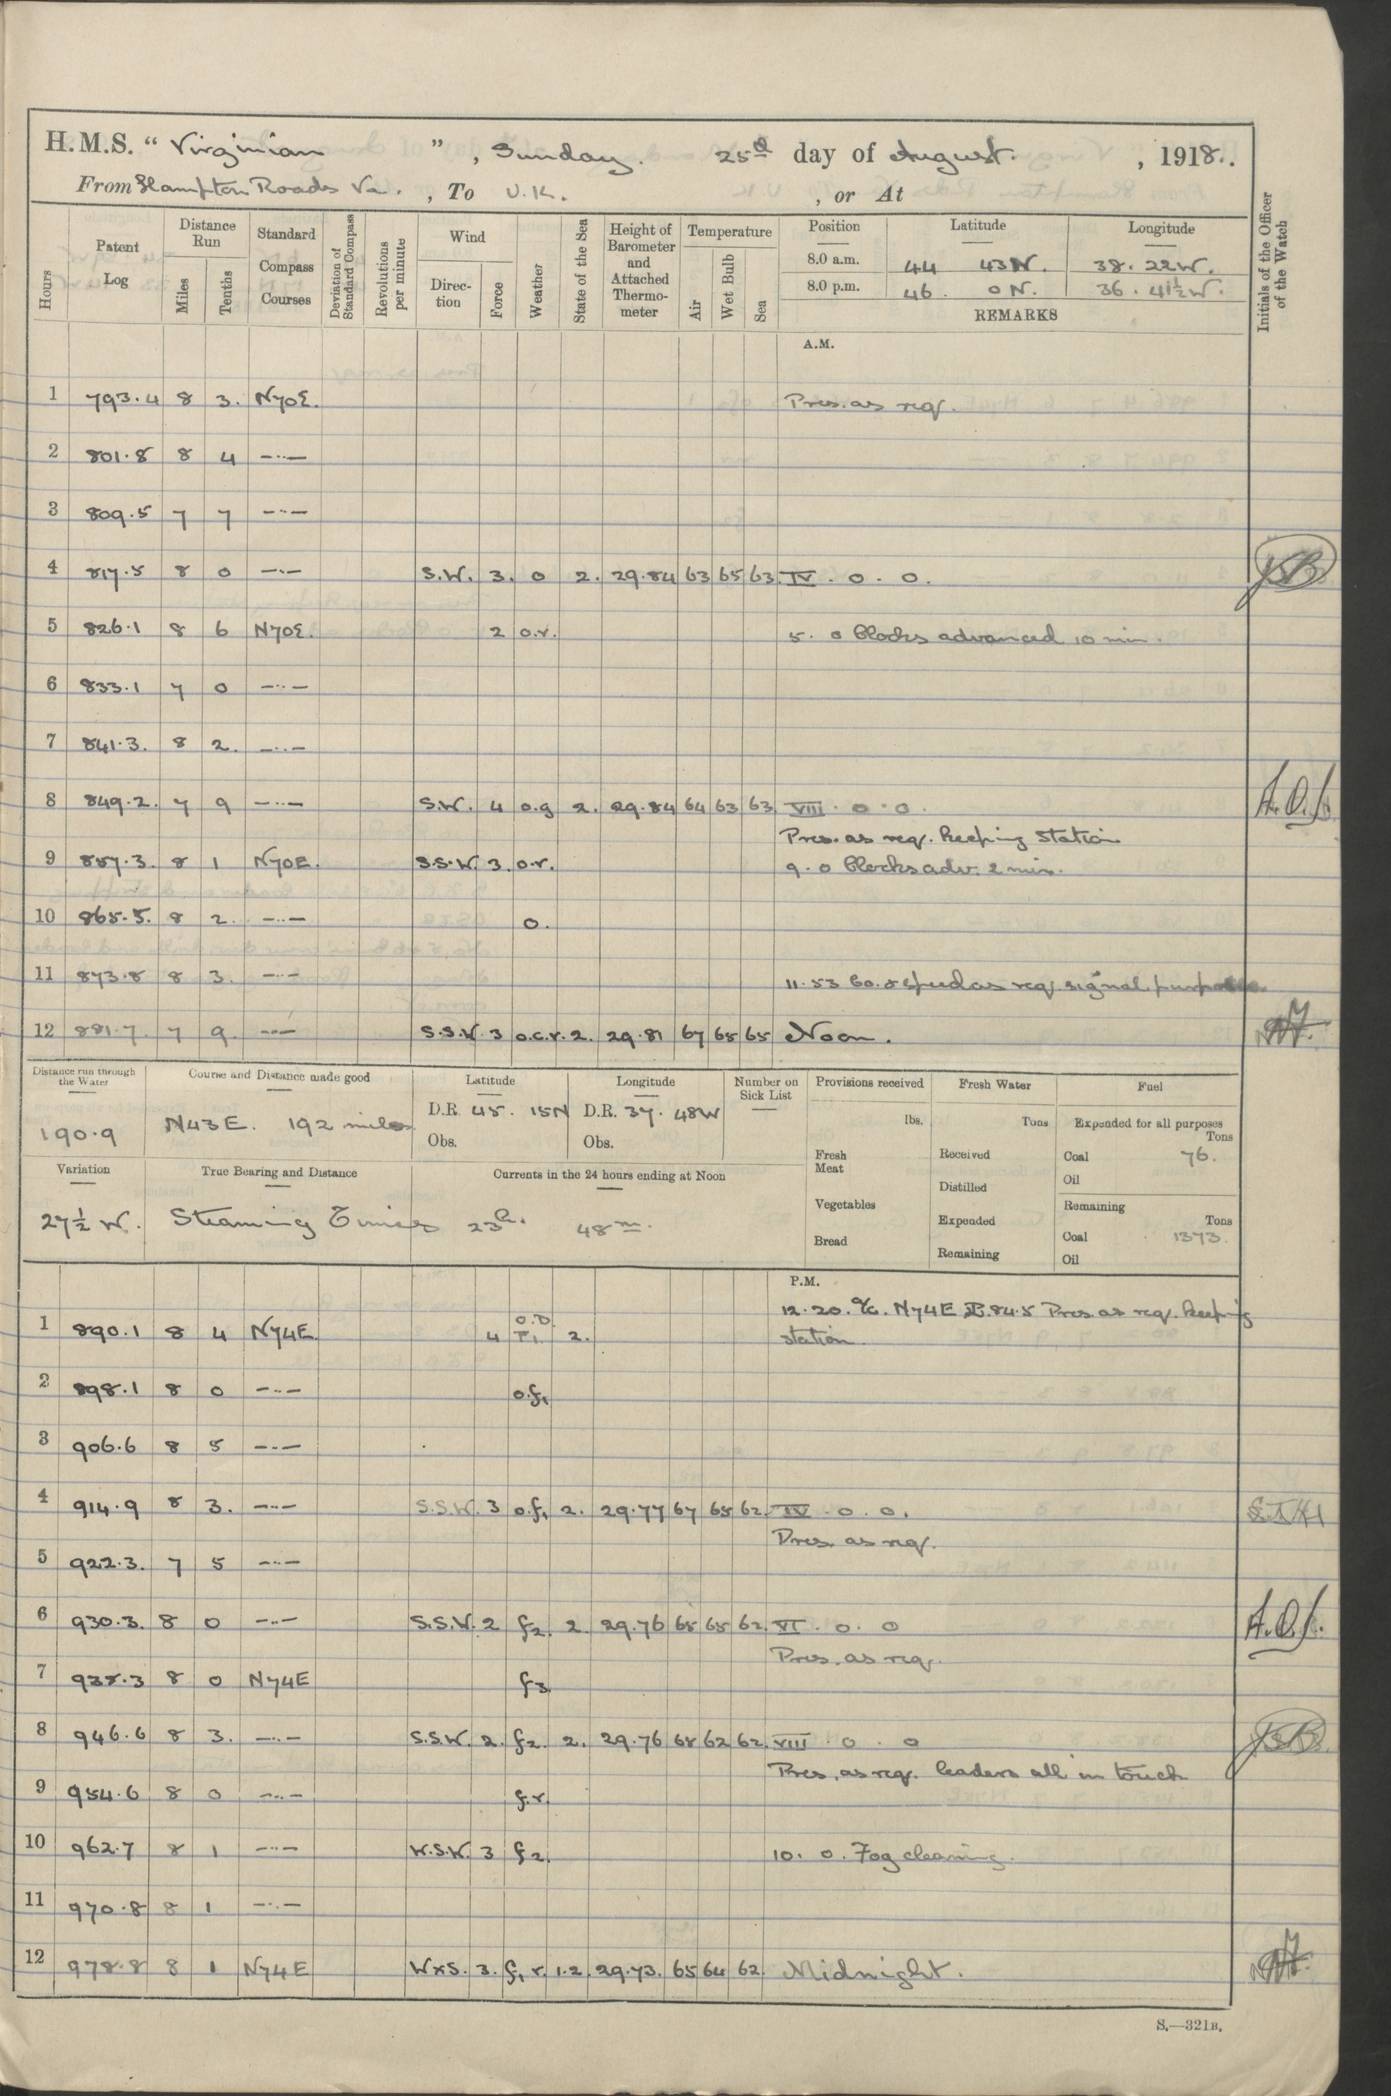 H.M.S. " Virginian " , Sunday. 25th day of August. , 1918.
From Hampton Roads Va. , To U.K. , or At
Hours
Patent Log
Distance Run
Miles
Tenths
Standard Compass Courses
Deviation of Standard Compass
Revolutions per minute
Wind
Direction
Force
Weather
State of the Sea
Height of Barometer and Attached Thermometer
Temperature
Air
Wet Bulb
Sea
Position Latitude Longitude
8.0 a.m. 44 43N. 38. 22W.
8.0 p.m. 46. 0N. 36. 41½W.
REMARKS
Initials of the Officer of the Watch
A.M.
1 793.4 8 3. N70E. Pres. as req.
2 801.8 8 4 —··—
3 809.5 7 7 —··—
4 817.5 8 0 —··— S.W. 3. o 2. 29.84 63 65 63 IV. 0. 0. JSB
5 826.1 8 6 N70E. 2 o.r. 5. 0 Clocks advanced 10 min.
6 833.1 7 0 —··—
7 841.3. 8 2. —··—
8 849.2. 7 9 —··— S.W. 4 o.g 2. 29.84 64 63 63 VIII. 0. 0.
Pres. as req. keeping station
9 857.3. 8 1 N70E. S.S.W. 3. o.r. 9. 0 Clocks adv. 2 min.
10 865.5. 8 2. —··— o.
11 873.8 8 3. —··— 11.53 Co. & speed as req. signal purposes
12 881.7. 7 9. —··— S.S.W 3 o.c.r. 2. 29.81 67 65 65 Noon.
Distance run through the Water
190.9
Course and Distance made good
N43E. 192 miles
Latitude
D.R. 45. 15N
Obs.
Longitude
D.R. 37. 48W
Obs.
Number on Sick List
Provisions received
lbs.
Fresh Meat
Vegetables
Bread
Fresh Water
Tons
Received
Distilled
Expended
Remaining
Fuel
Expended for all purposes
Tons
Coal 76.
Oil
Remaining
Tons
Coal 1373.
Oil
Variation
27½ W.
True Bearing and Distance
Currents in the 24 hours ending at Noon
Steaming Times 23h. 48m.
P.M.
12.20. a/c. N74E P.L. 84.5 Pres. as req. keeping
1 890.1 8 4 N74E. 4 o.D 2. station
2 898.1 8 0 —··— o.f1
3 906.6 8 5 —··—
4 914.9 8 3. —··— S.S.W. 3 o.f1 2. 29.77 67 65 62. IV. 0. 0.
Pres. as req.
5 922.3. 7 5 —··—
6 930.3. 8 0 —··— S.S.W. 2 f2. 2. 29.76 65 65 62. VI. 0. 0
Pres. as req.
7 938.3 8 0 N74E f3
8 946.6 8 3. —··— S.S.W. 2. f2. 2. 29.76 65 62 62. VIII. 0. 0 JSB
Pres. as req. leaders all in touch
9 954.6 8 0 —··— f.r.
10 962.7 8 1 —··— W.S.W. 3 f2. 10. 0. Fog clearing.
11 970.8 8 1 —··—
12 978.8 8 1 N74E WxS. 3. f1 r. 1.2. 29.73. 65 64 62. Midnight.
S.—321B.